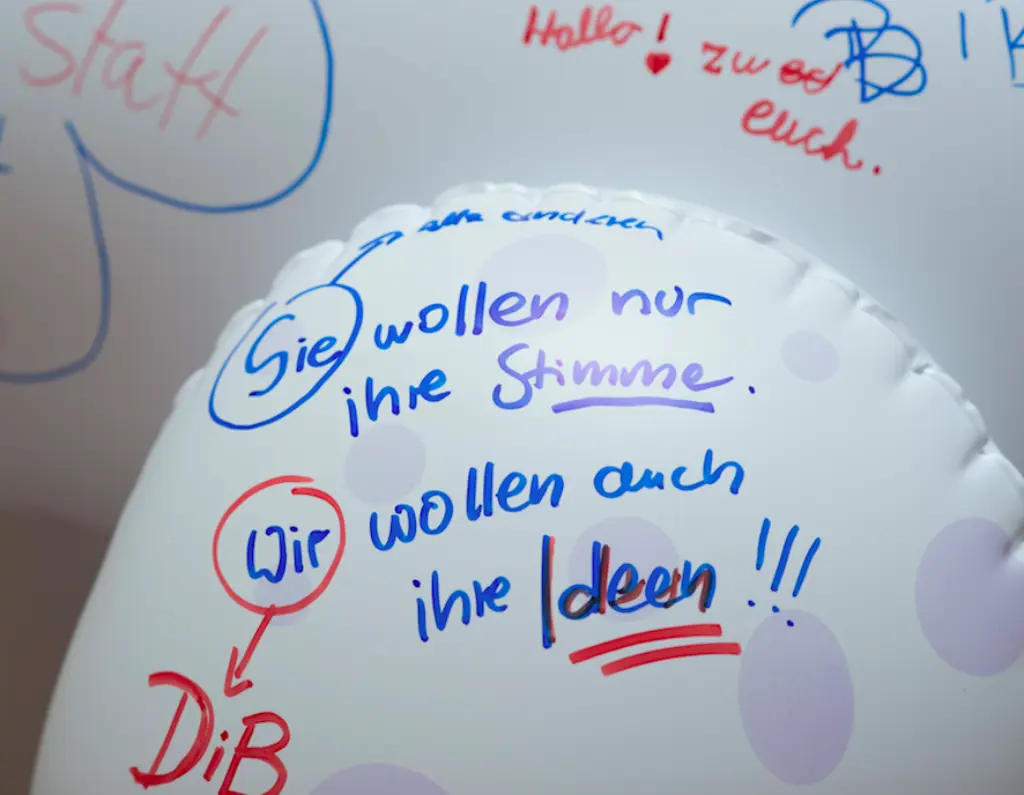 Statt
Hallo!
zu
euch.
alle anderen
Sie wollen nur
ihre Stimme.
Wir wollen auch
ihre Ideen !!!
DiB